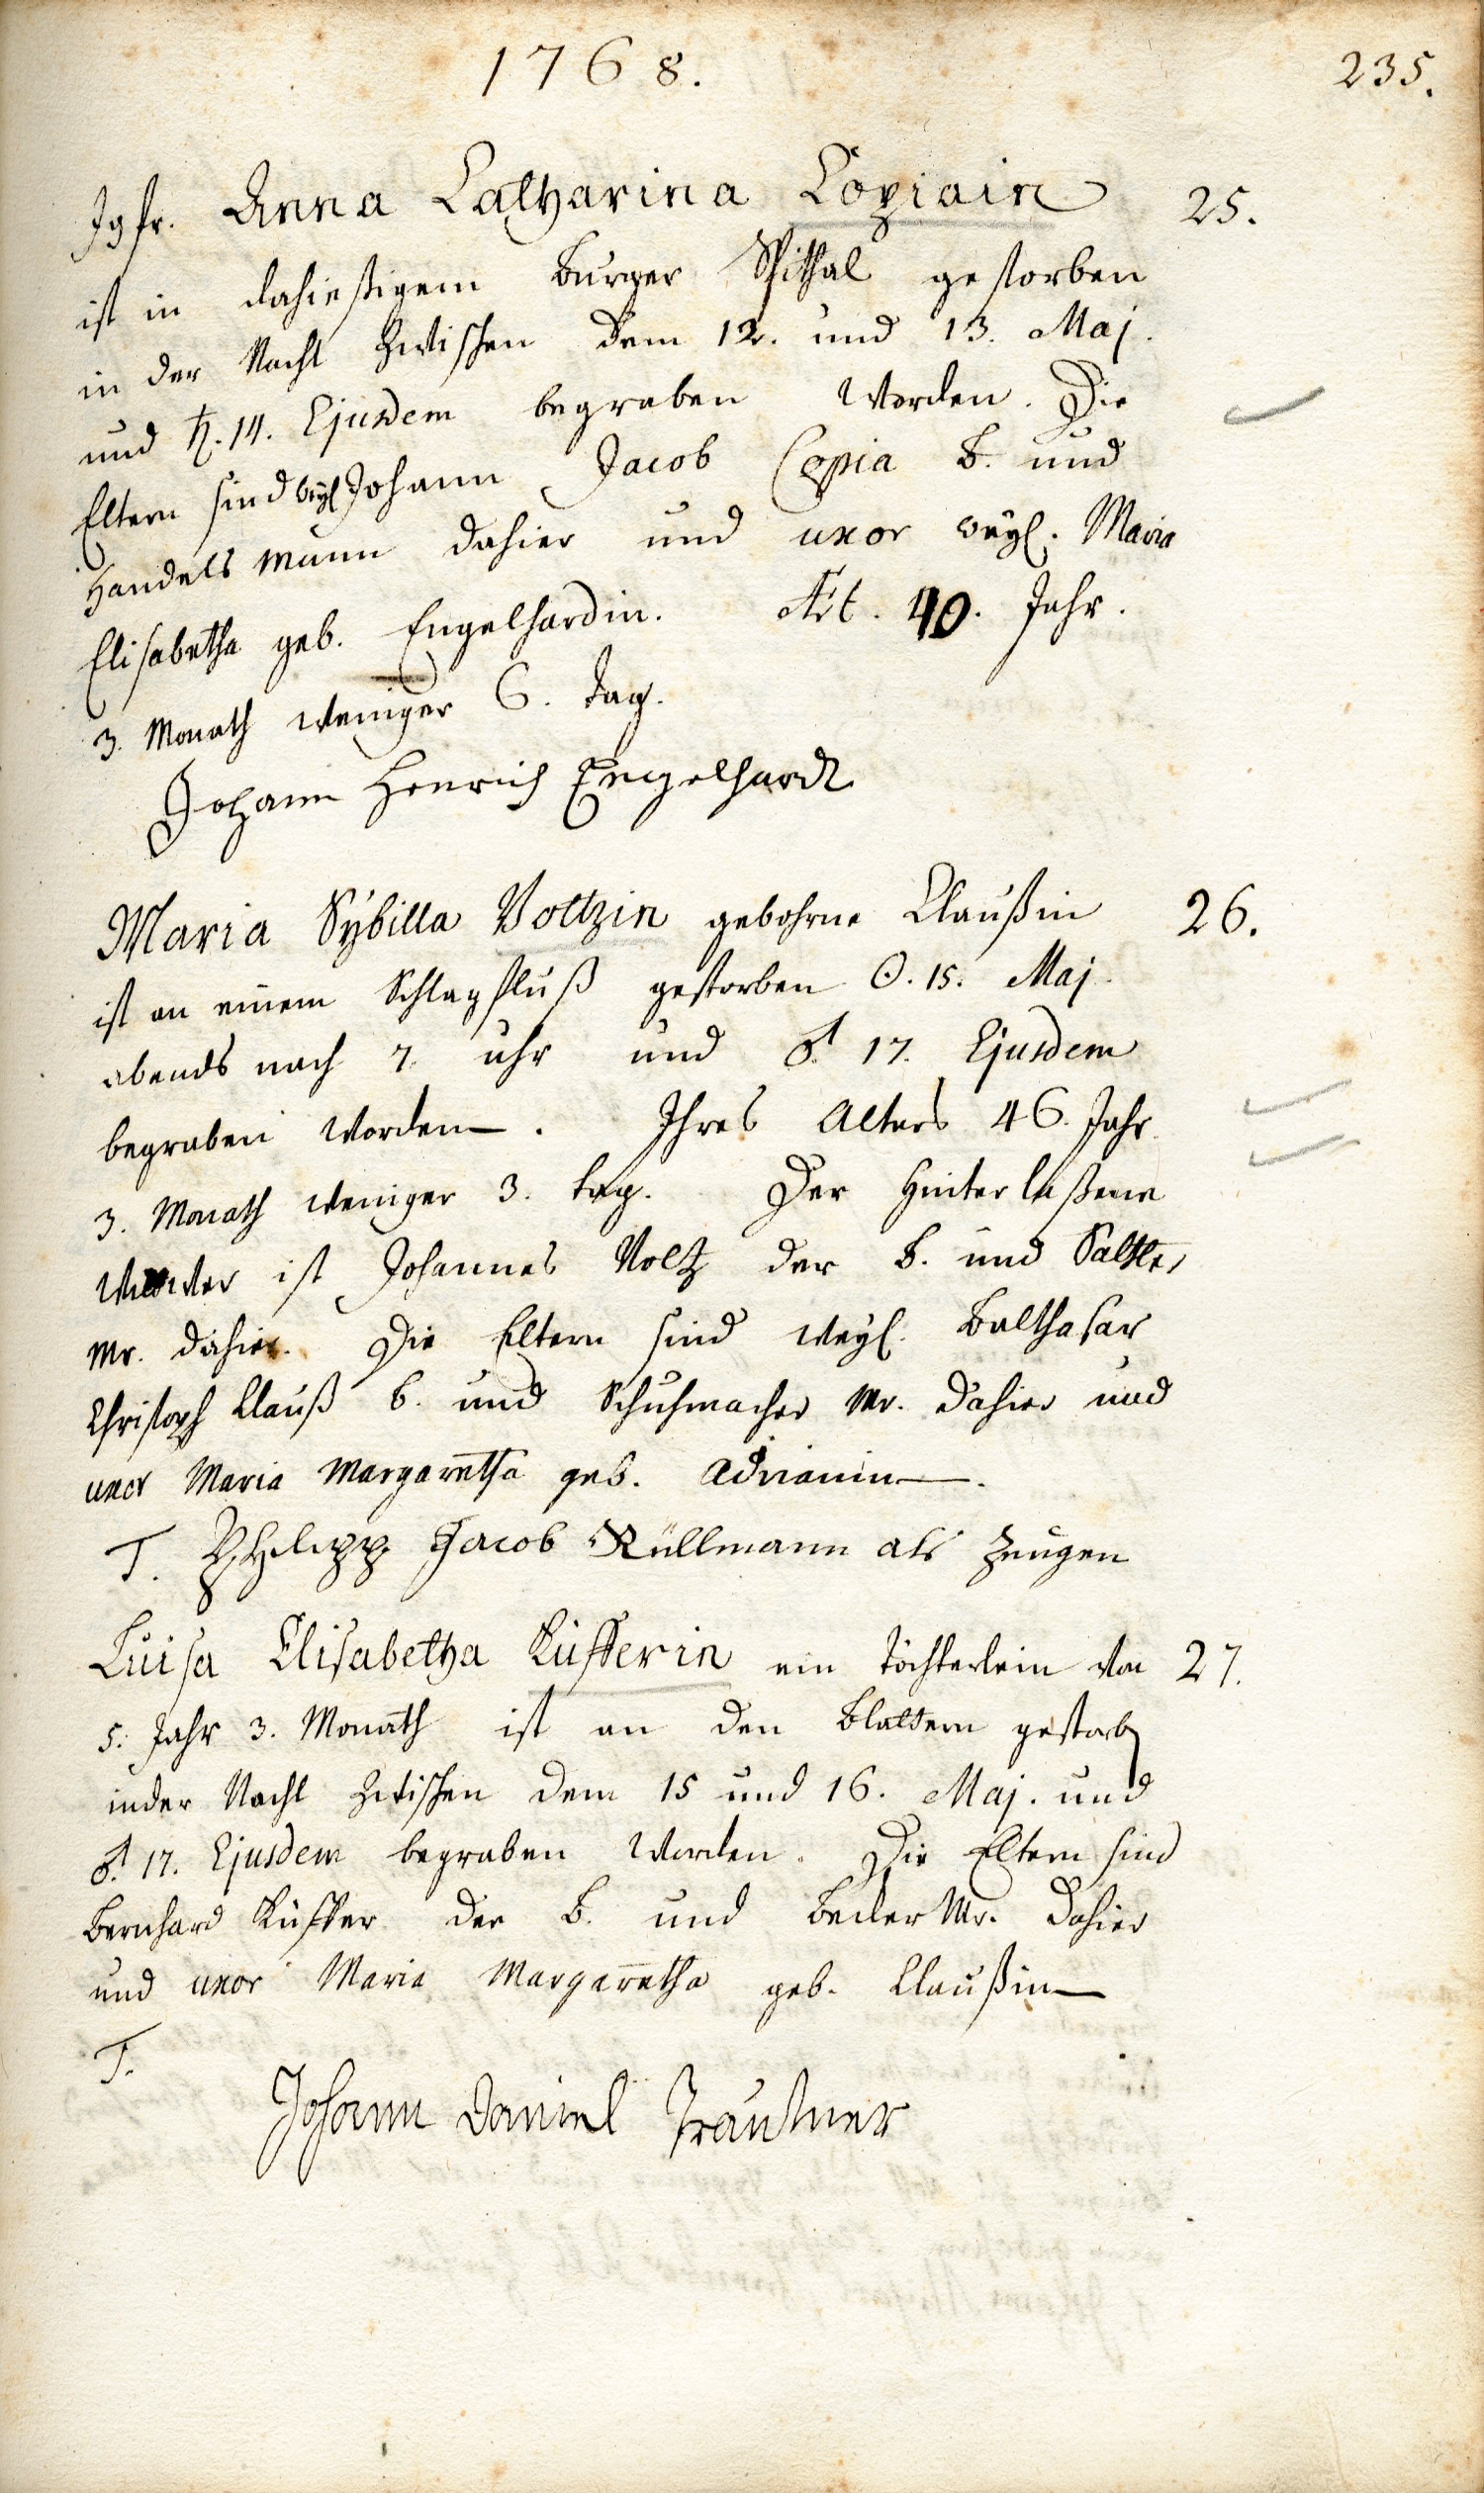 1768.
235.
Jgfr. Anna Catharina Copiain 25.
ist in dahießigem Burger Spithal gestorben
in der Nacht Zwischen dem 12. und 13. Maj.
und ♄. 14. Ejusdem begraben worden. Die
Eltern sind weyl Johann Jacob Copia B. und
Handels mann dahier und uxor weyl. Maria
Elisabetha geb. Engelhardin. Æt. 40. Jahr.
3. Monath weniger 6. tag.
Johann Henrich Engelhardt
Maria Sÿbilla Voltzin gebohrne Claußin 26.
ist an einem Schlagfluß gestorben ☉. 15. Maj.
abends nach 7. uhr und ♂. 17. Ejusdem
begraben worden. Ihres Alters 46. Jahr.
3. Monath weniger 3. tag. Der Hinterlaßene
Wittwer ist Johannes Voltz der B. und Sattler
Mr. dahier. Die Eltern sind weyl. Balthasar
Christoph Clauß B. und Schuhmacher Mr. dahier und
uxor Maria Margaretha geb. Adrianin.
T. Philipp Jacob Rüllmann als Zeugen
Luisa Elisabetha Küfferin ein Töchterlein von 27.
5. Jahr 3. Monath ist an den Blattern gestorb
in der Nacht Zwischen dem 15 und 16. Maj. und
♂. 17. Ejusdem begraben worden. Die Eltern sind
Bernhard Küffer der B. und Becker Mr. dahier
und uxor Maria Margaretha geb. Claußin
T.
Johann Daniel Trautner